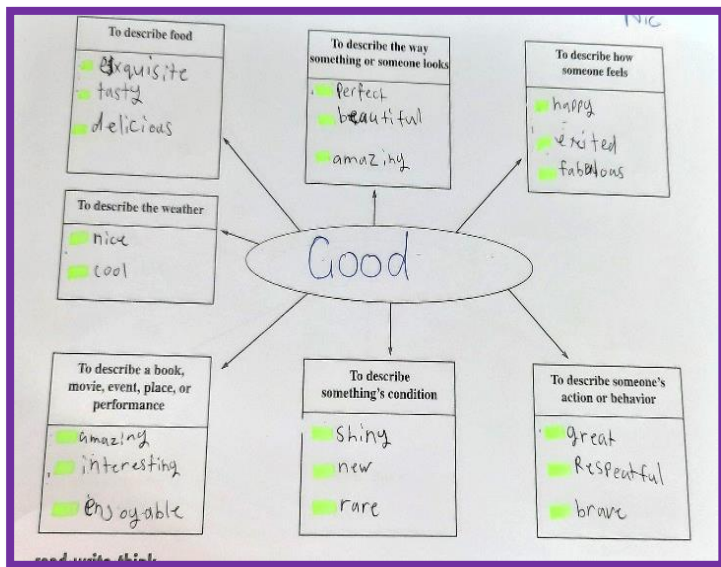 Nic
To describe food
exquisite
tasty
delicious
To describe the way
something or someone looks
perfect
beautiful
amazing
To describe how
someone feels
happy
exited
fabulous
To describe the weather
nice
cool
Good
To describe a book,
movie, event, place, or
performance
amazing
interesting
enjoyable
To describe
something's condition
Shiny
new
rare
To describe someone's
action or behavior
great
Respeatful
brave